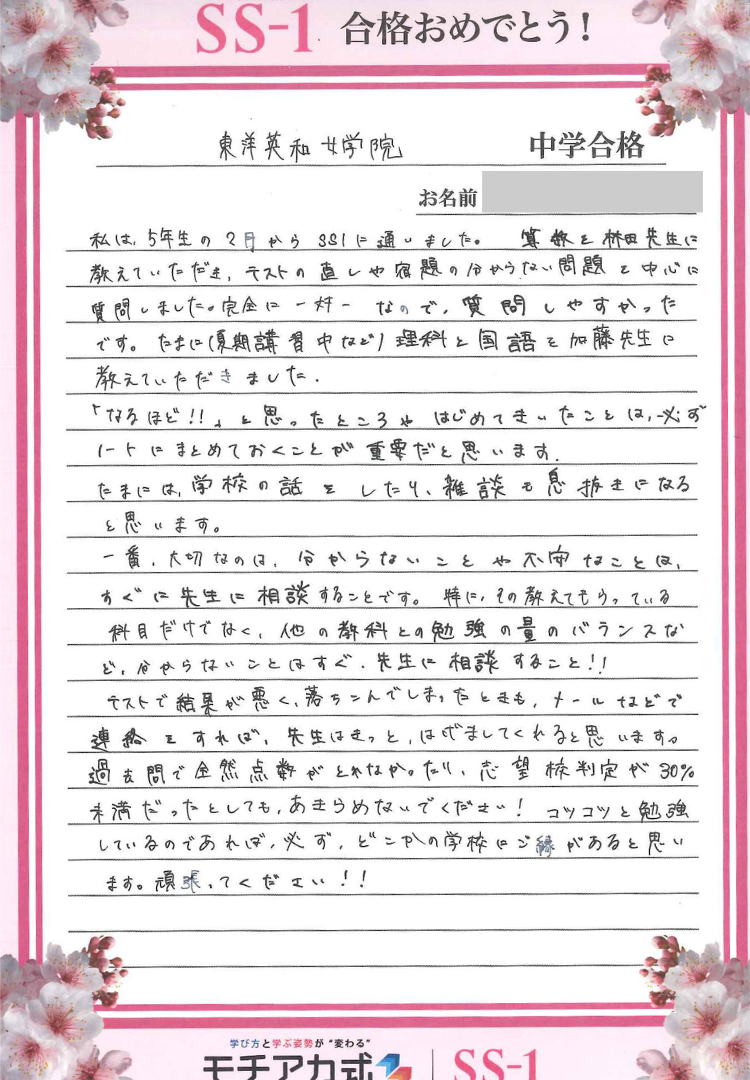 SS-1 合格おめでとう!
東洋英和女学院 中学合格
お名前
私は、5年生の2月からSS1に通いました。 算数を林田先生に
教えていただき、テストの直しや宿題の分からない問題を中心に
質問しました。完全に一対一なので、質問しやすかった
です。たまに(夏期講習中など)理科と国語を加藤先生に
教えていただきました.
「なるほど!!」と思ったところやはじめてきいたことは、必ず
ノートにまとめておくことが重要だと思います.
たまには、学校の話をしたり、雑談も息抜きになる
と思います。
一番、大切なのは、分からないことや不安なことは、
すぐに先生に相談することです。特に、その教えてもらっている
科目だけでなく、他の教科との勉強の量のバランスな
ど、分からないことはすぐ、先生に相談すること!!
テストで結果が悪く、落ちこんでしまったときも、メールなどで
連絡をすれば、先生はきっと、はげましてくれると思います。
過去問で全然点数がとれなかったり、志望校判定が30%
未満だったとしても、あきらめないでください! コツコツと勉強
しているのであれば、必ず、どこかの学校にご縁があると思い
ます。頑張ってください!!
学び方と学ぶ姿勢が“変わる”
モチアカ式 SS-1